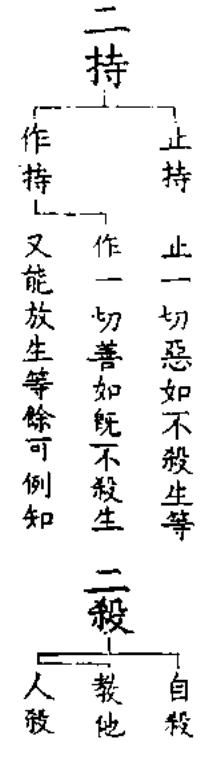 二持
止持
止一切惡如不殺生等
作持
作一切善如旣不殺生
又能放生等餘可例知
二殺
自殺
教他
人殺